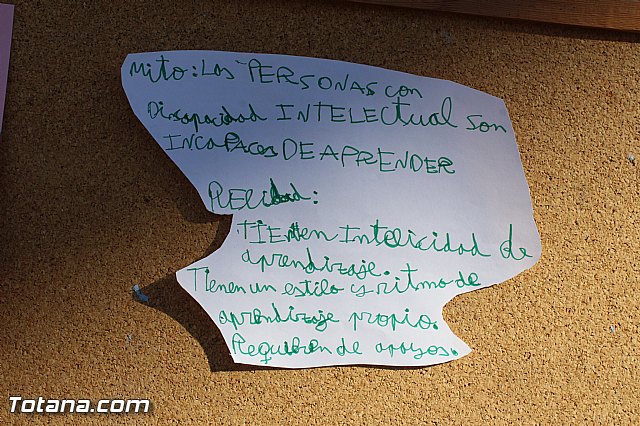 Mito: Las PERSONAS con
Discapacidad INTELECtual son
INCAPACes DE APRENDER
RELidad:
TIENen Intelicidad de
aprendizaje.
Tienen un estilo y ritmo de
aprendizaje propio.
Requieren de apoyos.
Totana.com